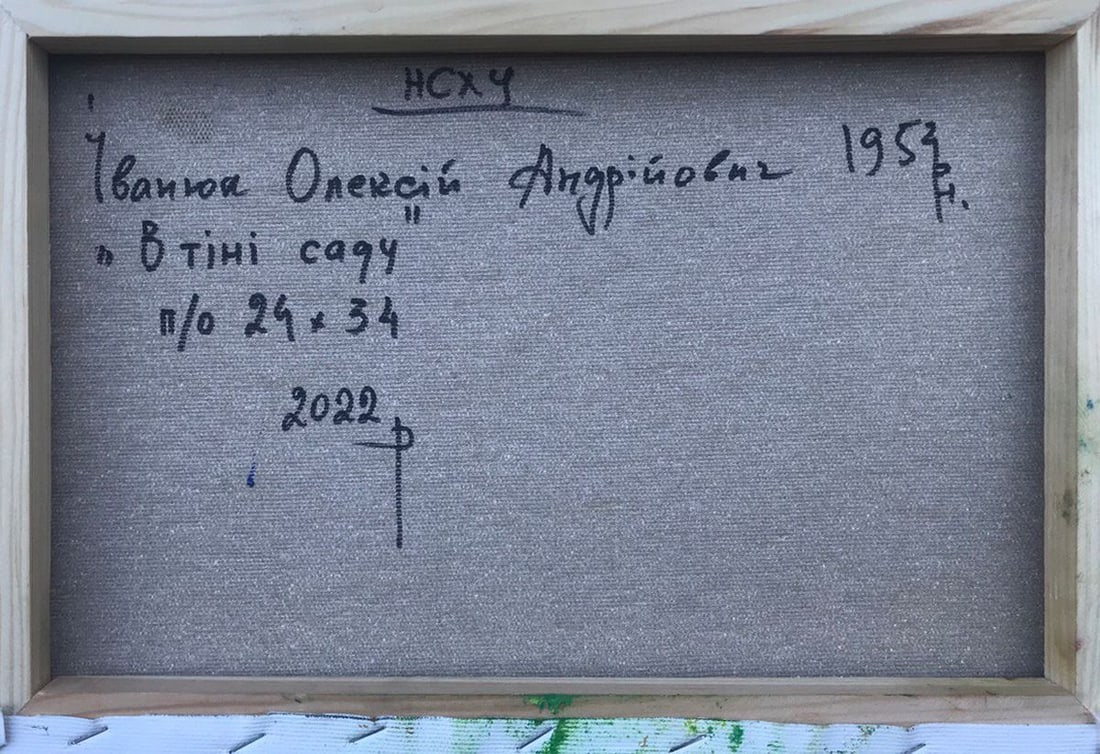 НСХУ
Іванюк Олексій Андрійович 1954 р.н.
"В тіні саду"
п/о 24 x 34
2022 р